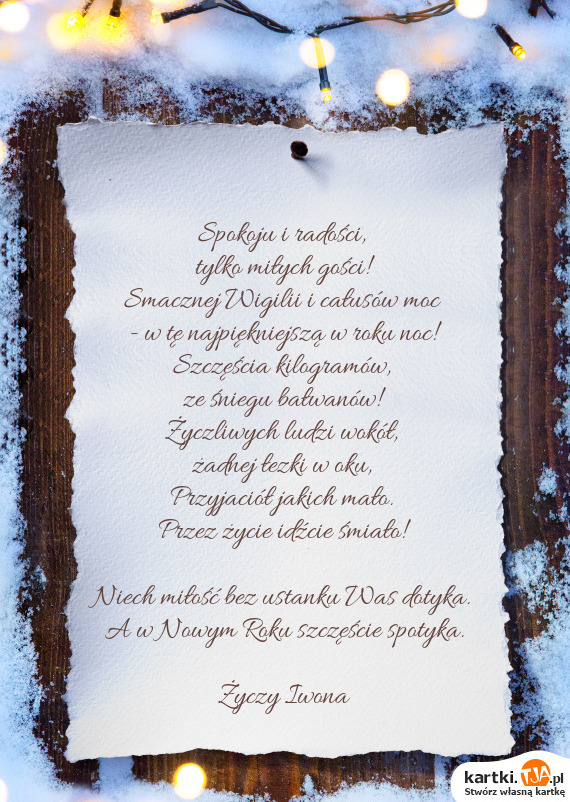 Spokoju i radości,
tylko miłych gości!
Smacznej Wigilii i całusów moc
- w tę najpiękniejszą w roku noc!
Szczęścia kilogramów,
ze śniegu bałwanów!
Życzliwych ludzi wokół,
żadnej łezki w oku,
Przyjaciół jakich mało.
Przez życie idźcie śmiało!
Niech miłość bez ustanku Was dotyka.
A w Nowym Roku szczęście spotyka.
Życzy Iwona
kartki.TJA.pl
Stwórz własną kartkę